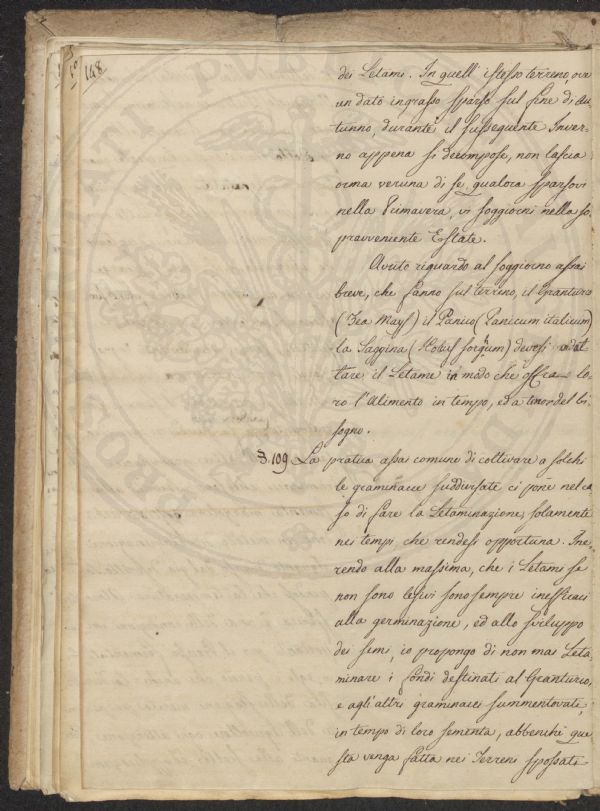 148
dei Letami. In quell' istesso terreno, ove
un dato ingrasso sparso sul fine di Au-
tunno, durante il susseguente Inver-
no appena si decompose, non lascia
orma veruna di se, qualora sparsovi
nella Primavera, vi soggiorni nella so-
pravveniente Estate.
Avuto riguardo al soggiorno assai
breve, che fanno sul terreno, il Granturco
(Zea Mays) il Panico (Panicum italicum)
la Saggina (Holcus sorgum) devesi adat
tare il Letame in modo che offra lo-
ro l'Alimento in tempo, ed a tenor del bi-
sogno.
§. 109 La pratica assai comune di coltivare a solchi
le graminacee suddursate ci pone nel ca
so di fare la Letaminazione solamente
nei tempi che rendesi opportuna. Ine-
rendo alla massima, che i Letami se
non sono lesivi sono sempre inefficaci
alla germinazione, ed allo sviluppo
dei semi, io propongo di non mai Leta-
minare i fondi destinati al Granturco,
e agli altri graminacei summentovati,
in tempo di loro sementa, abbenchè que
sta venga fatta nei Terreni spossati